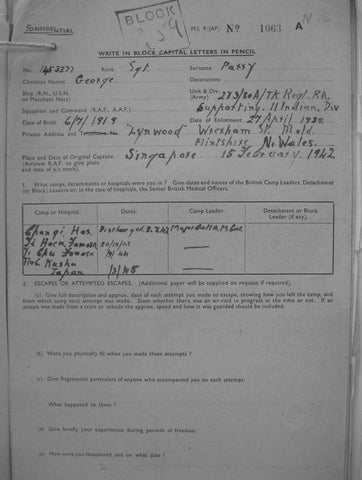 CONFIDENTIAL
BLOCK
M.I. 9/JAP/ No 1063 A
WRITE IN BLOCK CAPITAL LETTERS IN PENCIL
No. 1453377 Rank Sgt. Surname Parry
Christian Names George Decorations
Ship (R.N., U.S.N. or Merchant Navy) Unit & Div. (Army) 273/80A/TK Regt. RA,
Squadron and Command (R.A.F., A.A.F.) Supporting. 11 Indian. Div
Date of Birth 6/7/1919 Date of Enlistment 27 April 1939.
Private Address and Telephone No. "Lynwood" Wrexham St. Mold.
Flintshire N. Wales.
Place and Date of Original Capture Singapore 15 February. 1942
(Aircrew R.A.F. to give place
and date of a/c crash).
1. What camps, detachments or hospitals were you in? Give dates and names of the British Camp Leaders, Detachment
(or Block) Leaders or, in the case of hospitals, the Senior British Medical Officers.
Camp or Hospital. Dates. Camp Leader. Detachment or Block Leader (if any).
Changi Hos.
Formosa
Formosa
Japan
2. ESCAPES OR ATTEMPTED ESCAPES. (Additional paper will be supplied on request if required).
(a) Give full description and approx. date of each attempt you made to escape, showing how you left the camp, and
from which camp each attempt was made. State whether there was an air-raid in progress at the time or not. If an
escape was made from a train or vehicle the approx. speed and how it was guarded should be included.
(b) Were you physically fit when you made these attempts ?
(c) Give Regimental particulars of anyone who accompanied you on each attempt.
What happened to them ?
(d) Give briefly your experiences during periods of freedom.
(e) How were you recaptured and on what date ?